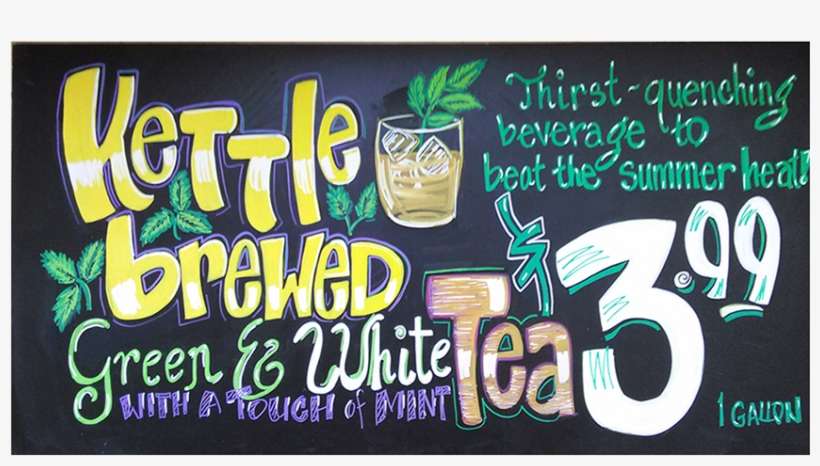 Kettle
brewed
Green & White Tea
WITH A TOUCH of MINT
Thirst-quenching
beverage to
beat the summer heat!
$3.99
1 GALLON